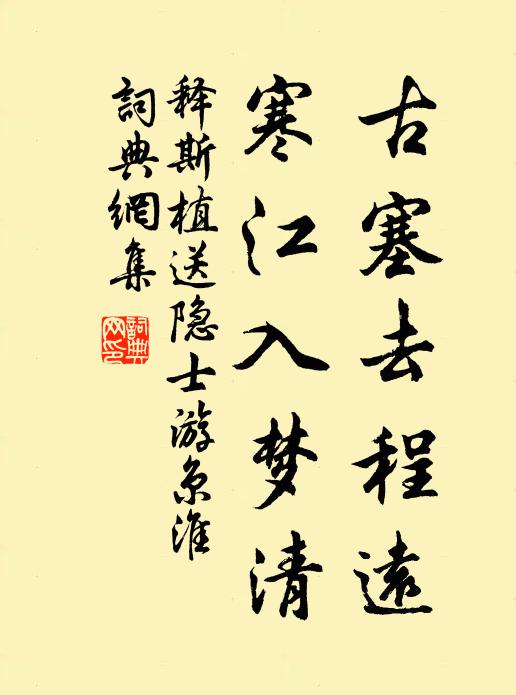 古塞去程遠
寒江入梦清
释斯植送隐士游京淮
詞典網集
詞典网印